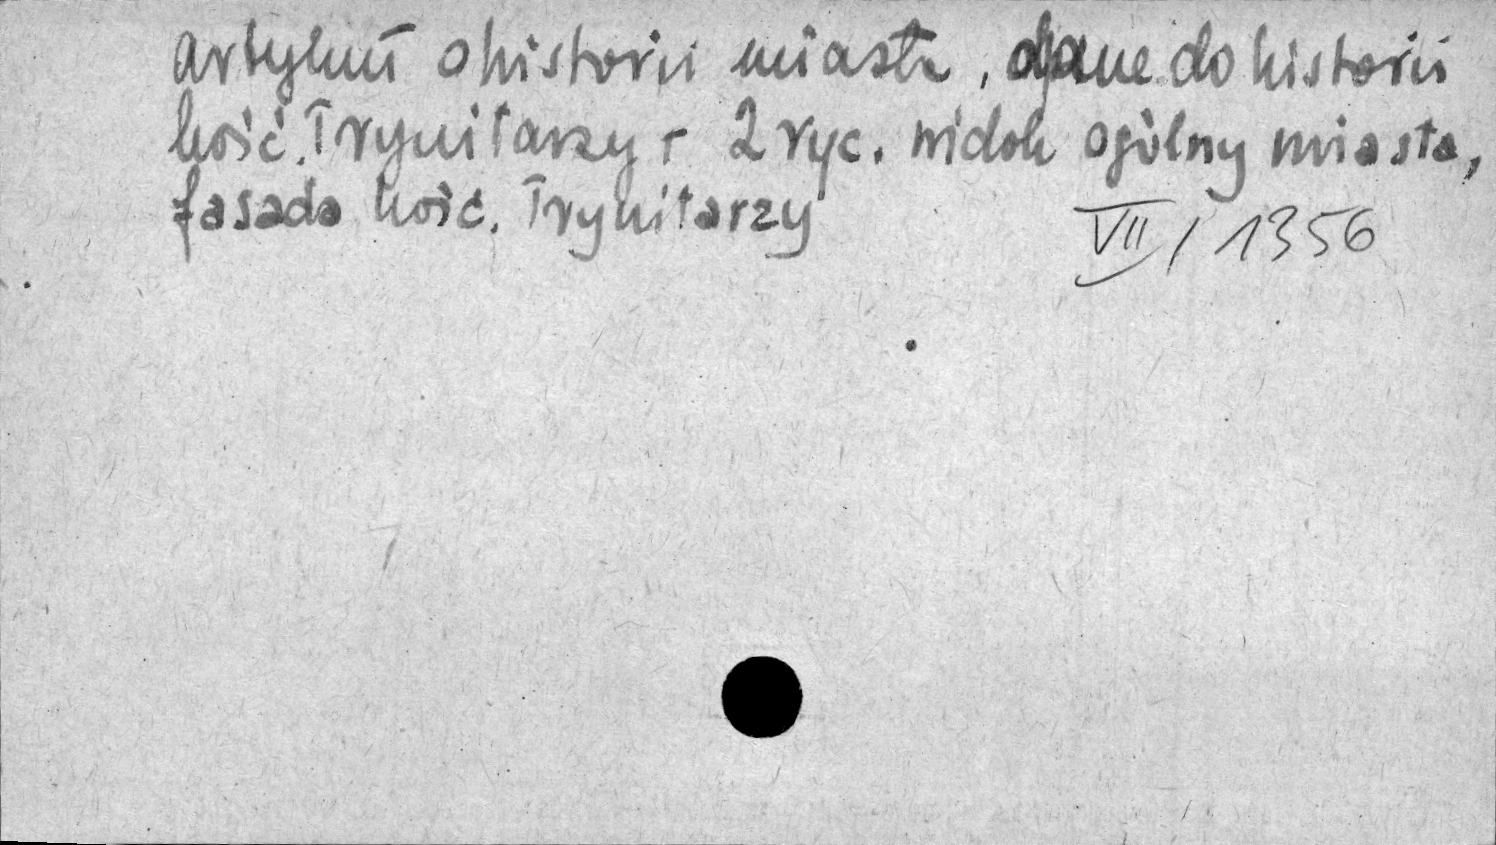 artykuł o historii miasta, dane do historii
kość. Trynitarzy + 2 ryc. widok ogólny miasta,
fasada kość. Trynitarzy
VII / 1356